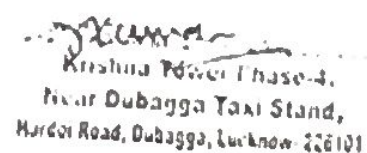 Krishna Tower Phase-4,
Near Dubagga Taxi Stand,
Hardoi Road, Dubagga, Lucknow-226101